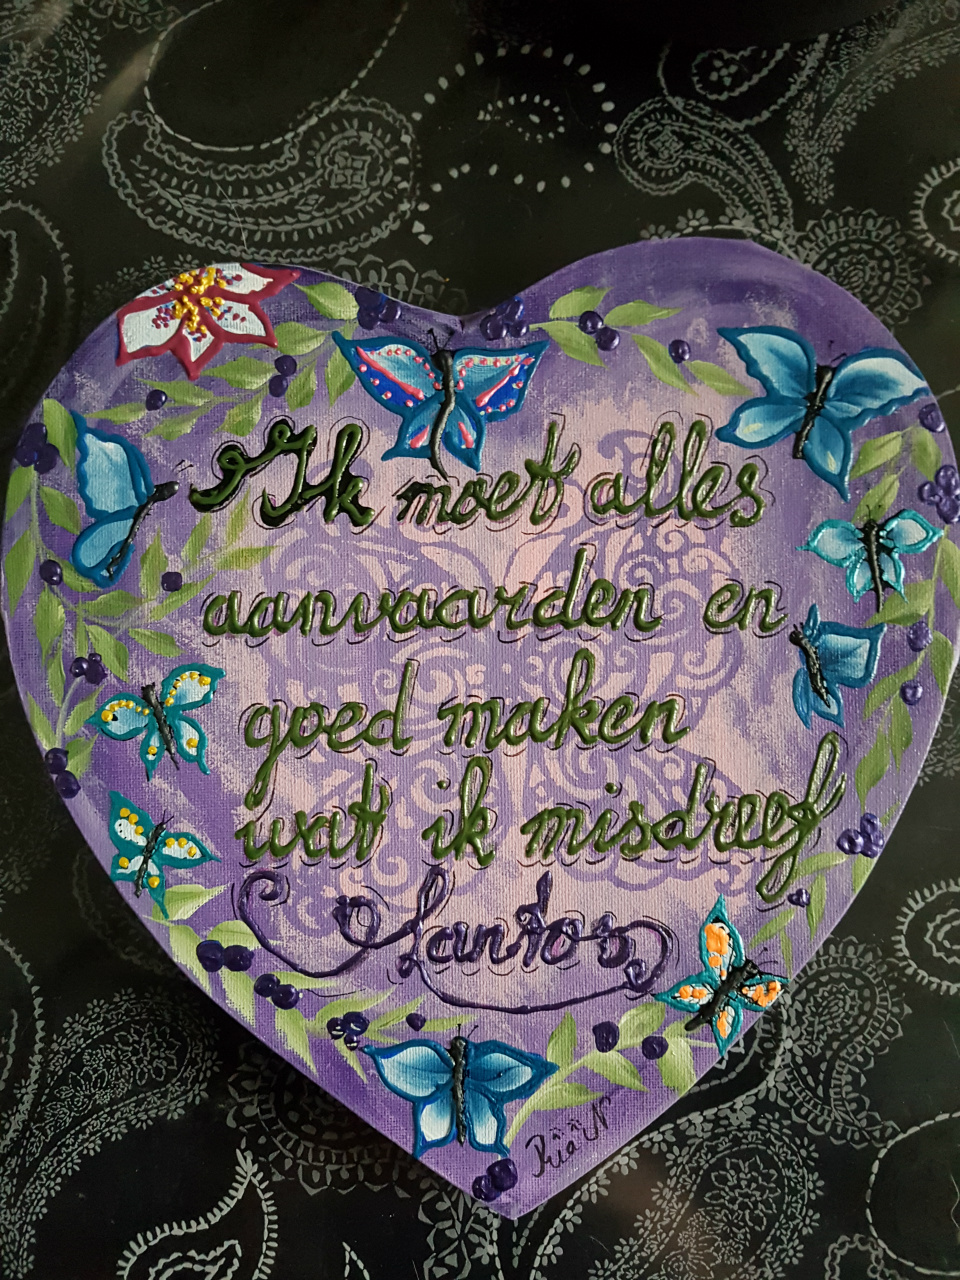 Ik moet alles
aanvaarden en
goed maken
wat ik misdreef
Santos